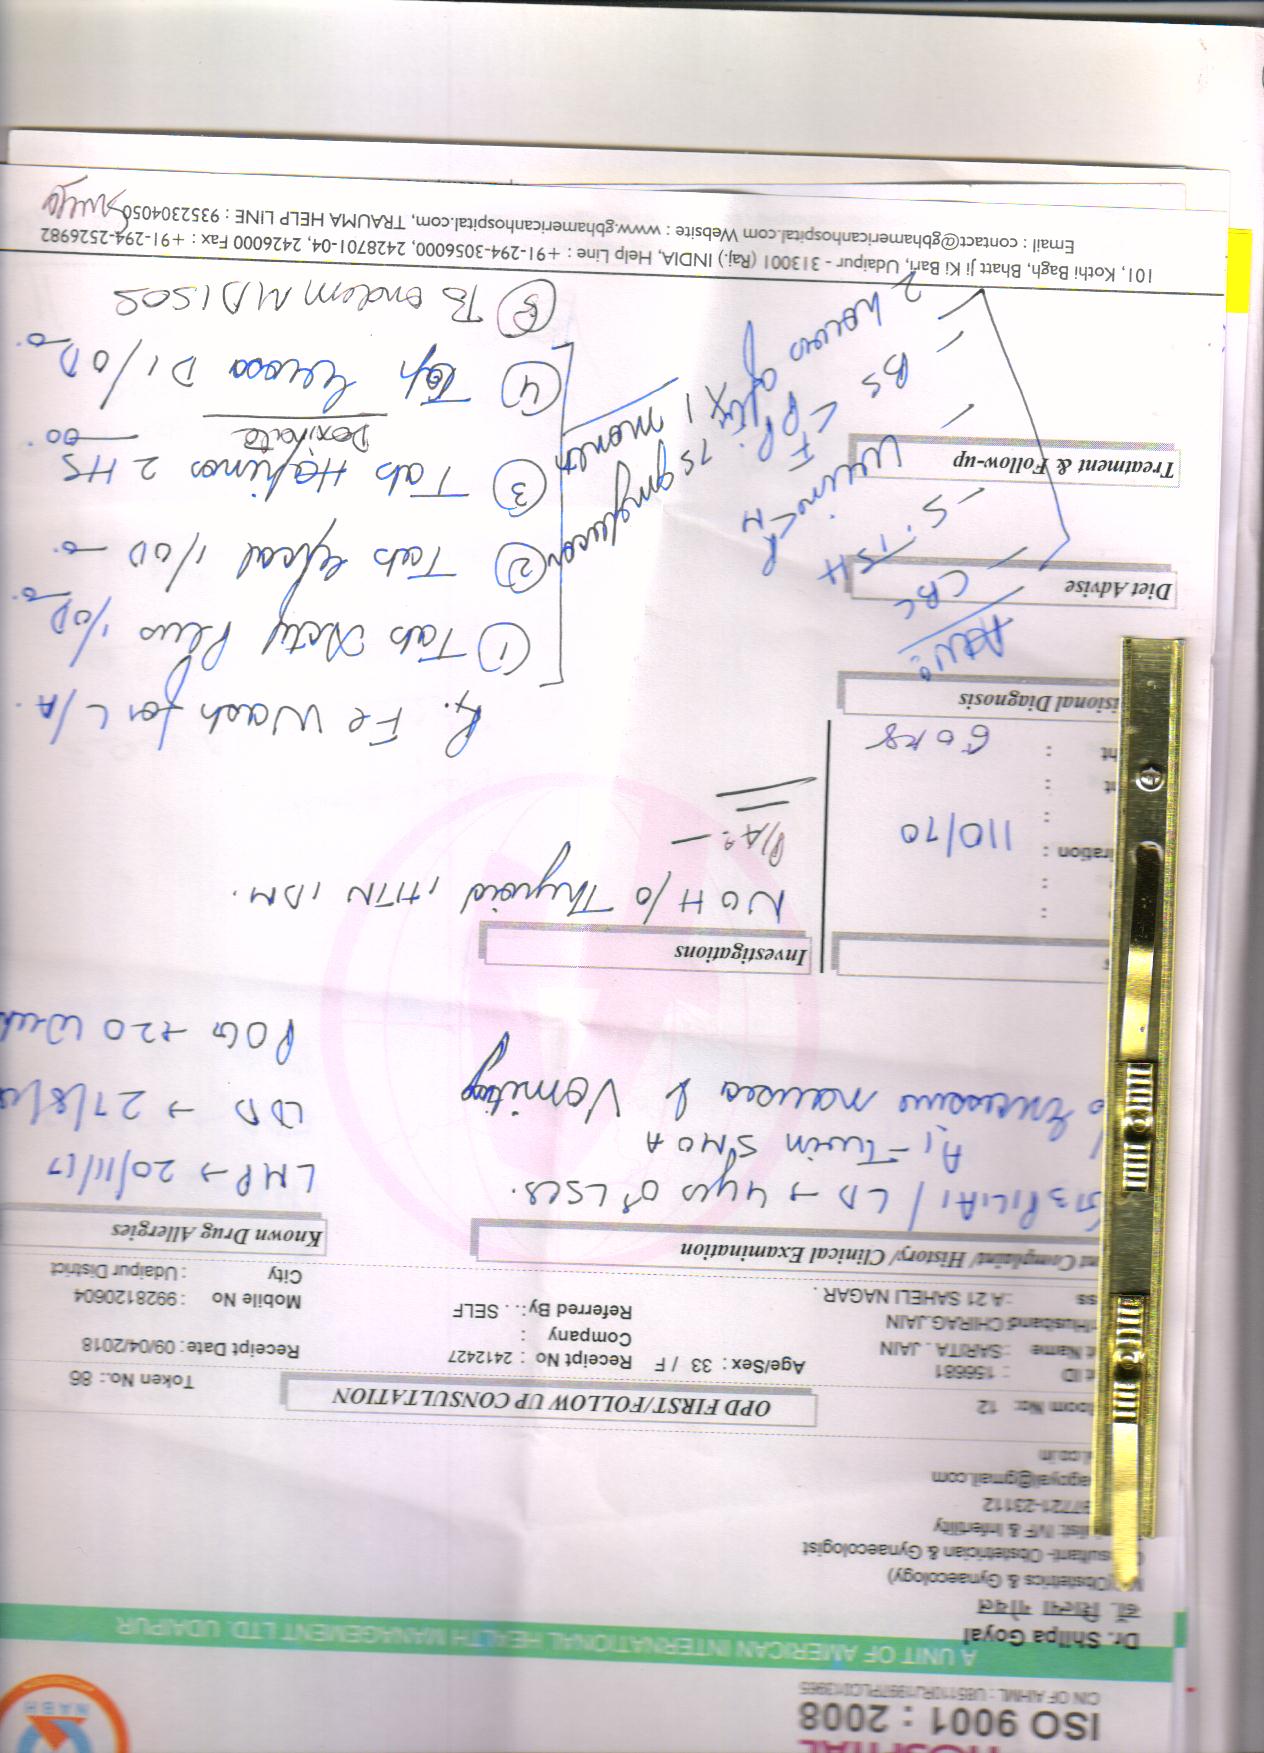 HOSPITAL
ISO 9001 : 2008
CIN OF AHML : U85110RJ1997PLC013965
NABH
A UNIT OF AMERICAN INTERNATIONAL HEALTH MANAGEMENT LTD. UDAIPUR
Dr. Shilpa Goyal
डॉ. शिल्पा गोयल
(Obstetrics & Gynaecology)
sultant- Obstetrician & Gynaecologist
list: IVF & Infertility
97721-23112
agoyal@gmail.com
l.co.in
oom No: 12
OPD FIRST/FOLLOW UP CONSULTATION
Token No.: 86
t ID : 156681
t Name : SARITA . JAIN
Age/Sex : 33 / F Receipt No : 2412427
Receipt Date : 09/04/2018
Husband CHIRAG.JAIN
Company :
ss : A 21 SAHELI NAGAR .
Referred By : . . SELF
Mobile No : 9928120604
City : Udaipur District
nt Complaint/ History/ Clinical Examination
Known Drug Allergies
G3P1L1A1 / LD → 4yrs LSCS.
A1 - Twin SMOA
Excessive nausea & Vomiting
LMP → 20/11/17
EDD → 27/8/18
POG → 20 Week
s
Investigations
NO H/O Thyroid, HTN, DM.
P/A:
iration : 110/70
ht : 60 kg
isional Diagnosis
Adv:
CBC
S. TSH
Urine R M
BS F PP after 2 hours of 75 gm glucose
Diet Advise
Treatment & Follow-up
Rx. Fe Wash for L/A.
① Tab Plus 1/OD
② Tab 1/OD
③ Tab 2 HS
④ Tab D 1/OD
⑤ Tb ondem MD SOS
X 1 month
101, Kothi Bagh, Bhatt Ji Ki Bari, Udaipur - 313001 (Raj.) INDIA, Help Line : +91-294-3056000, 2428701-04, 2426000 Fax : +91-294-2526982
Email : contact@gbhamericanhospital.com Website : www.gbhamericanhospital.com, TRAUMA HELP LINE : 9352304050